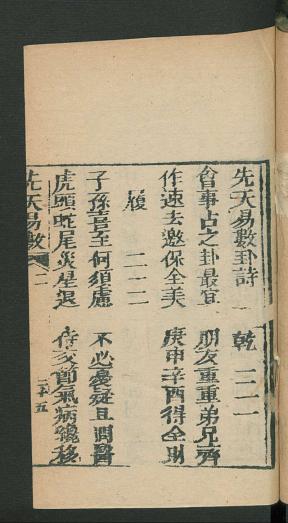 先天易數卦詩
乾 三一一
會事占之卦最宜 朋友重重弟兄齊
作速去邀保全美 庚申辛酉得全財
履 二二二
子孫喜至何須慮 不必憂疑且調醫
虎頭蛇尾炎星退 侍交節氣病纔移
先天易數 二
三十五